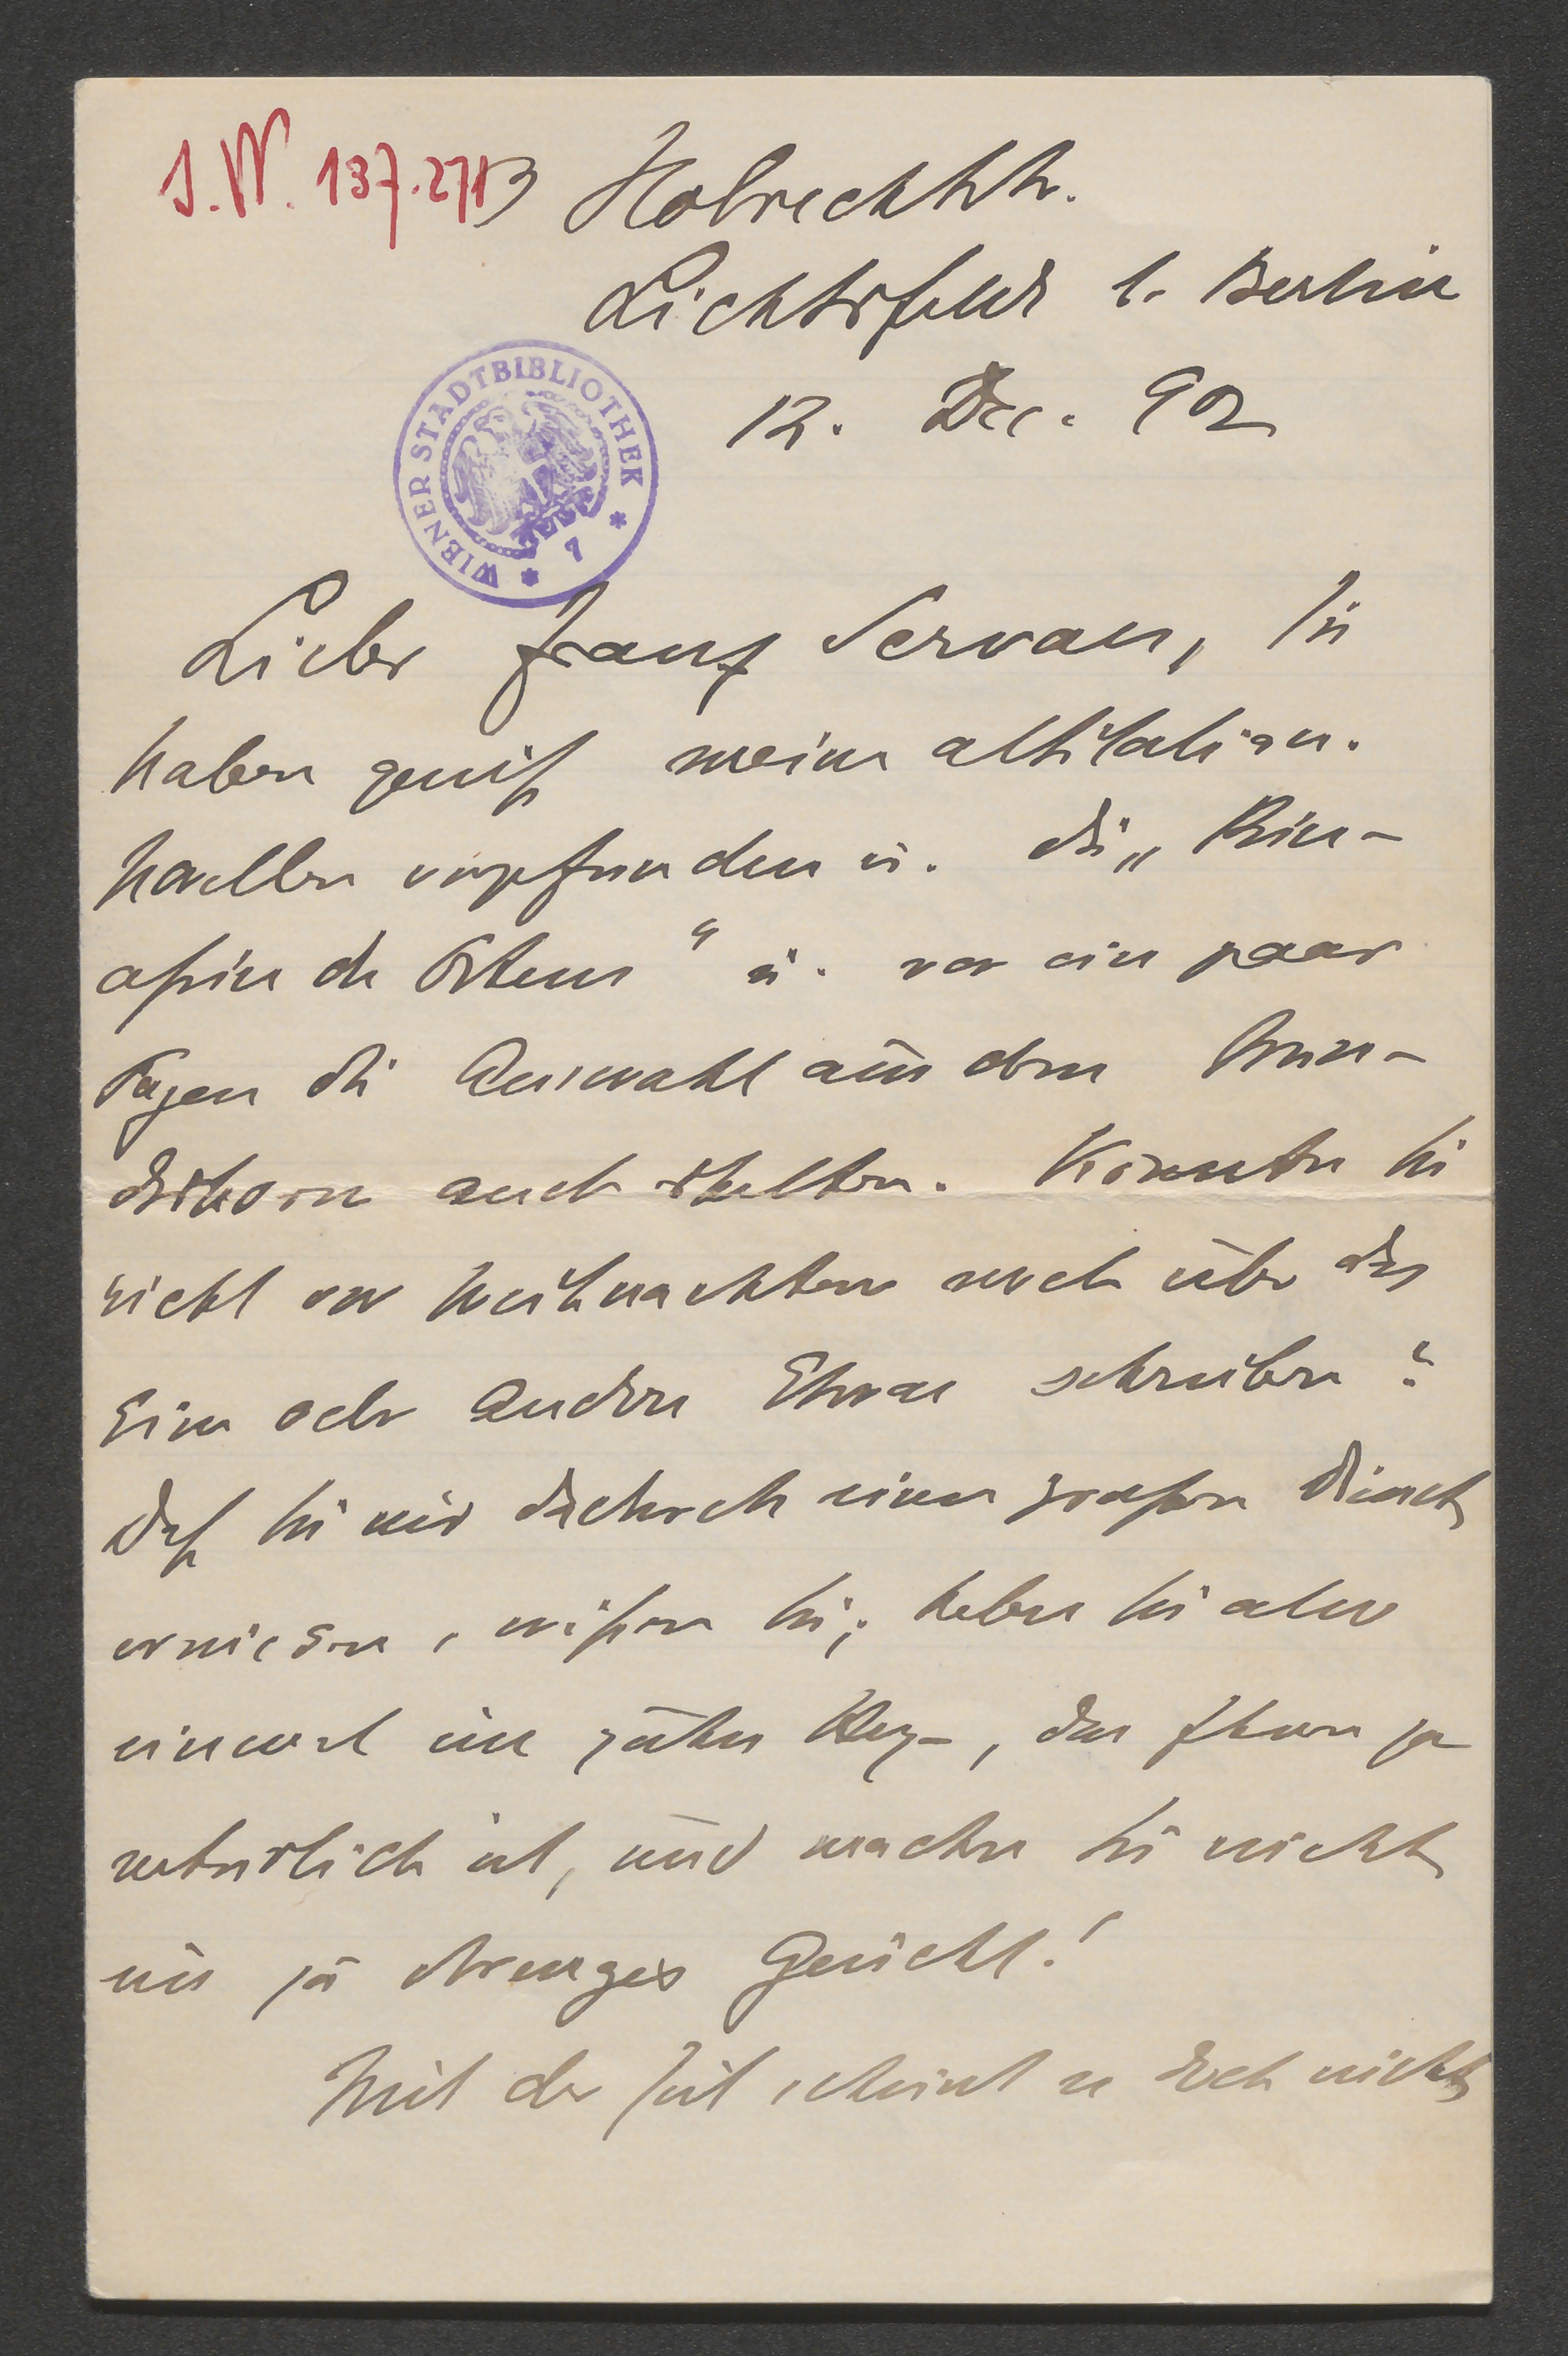 J.N. 137.271
3 Holrechtstr.
Lichterfelde b. Berlin
12. Dec. 902
WIENER STADTBIBLIOTHEK
* 7 *
Lieber Franz Servaes, Sie
haben gewiß meine altitalien.
Novellen empfunden u. die „Prin-
ossin des Ostens“ u. vor ein paar
Tagen die Auswahl aus dem Wun-
derhorn auch erhalten. Könnten Sie
nicht vor Weihnachten noch über das
Eine oder Andere Etwas schreiben?
Daß Sie mir dadurch einen großen Dienst
erwiesen, wißen Sie; haben Sie also
einmal ein gutes Herz, das Ihnen ja
natürlich ist, und machen Sie nicht
ein zu strenges Gesicht!
Mit der Zeit scheint es doch nichts